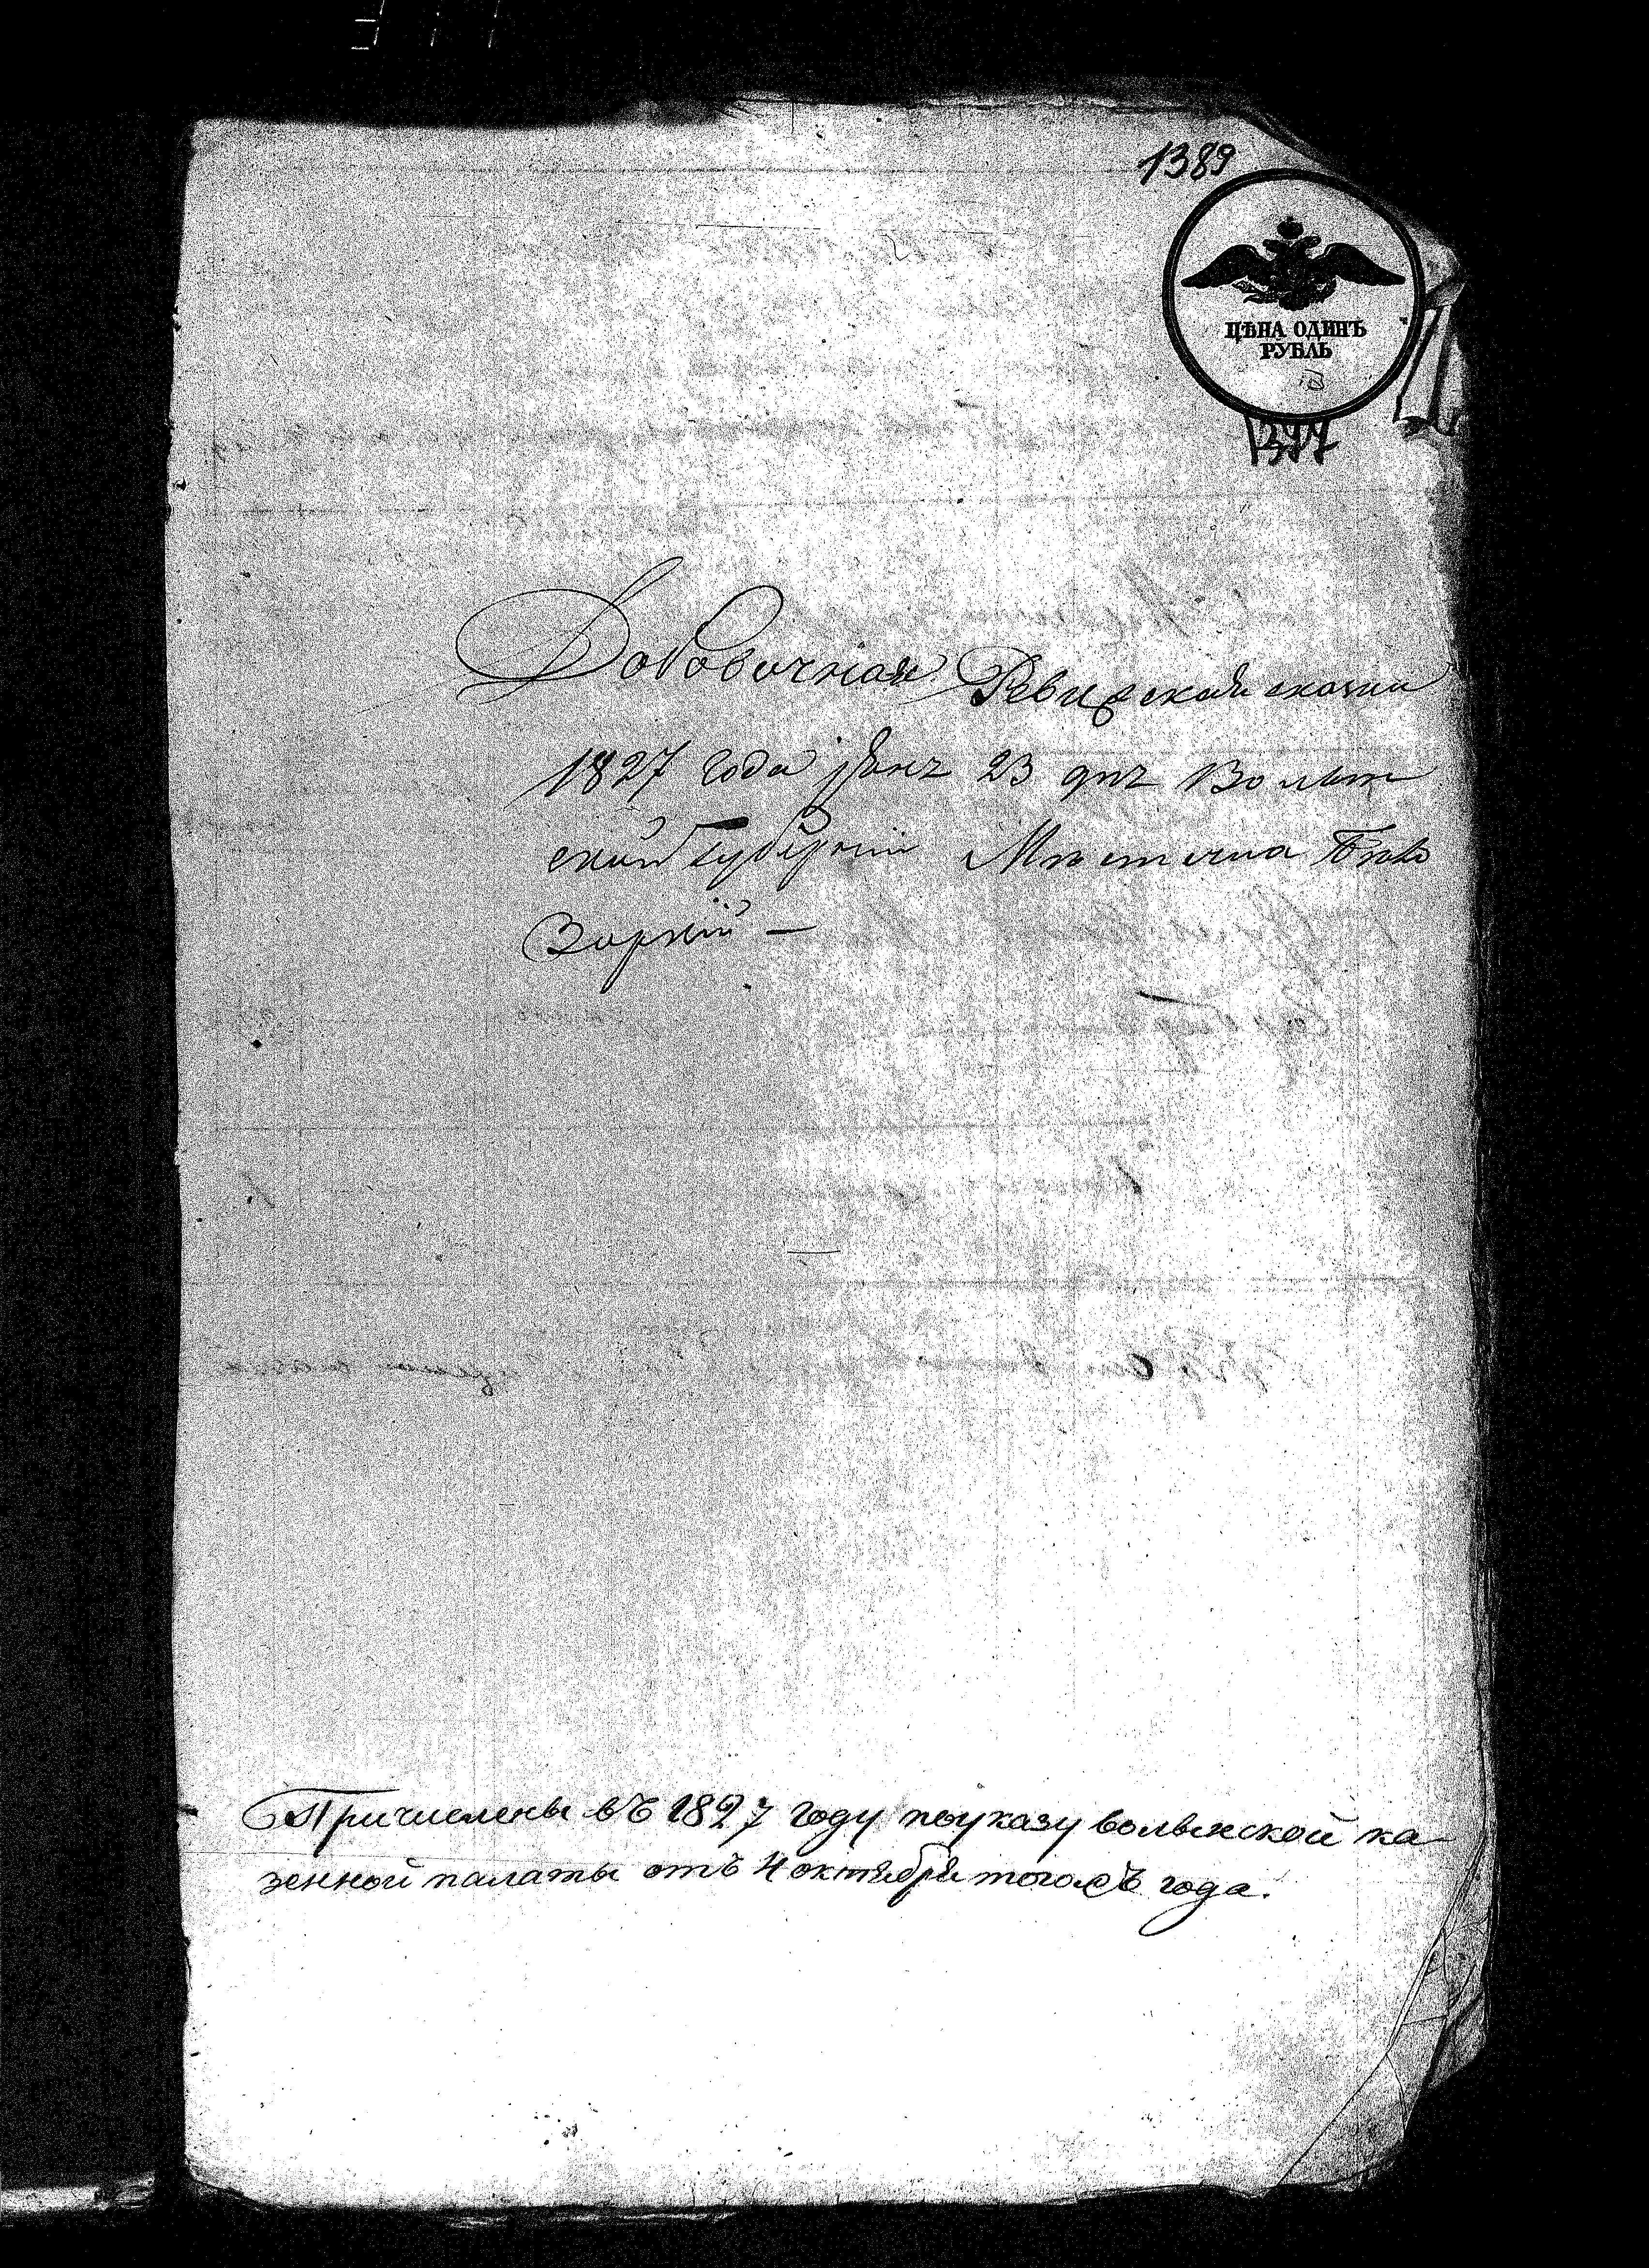 1389
ЦѢНА ОДИНЪ
РУБЛЬ
1377
Добовочная Ревизская сказка
1827 года 23 дня Волын
ской Губернии Мѣстечка Бѣло
Зоркий —
Причислены въ 1827 году поуказу волынской ка-
зенной палаты отъ 4 октября тогожъ года.